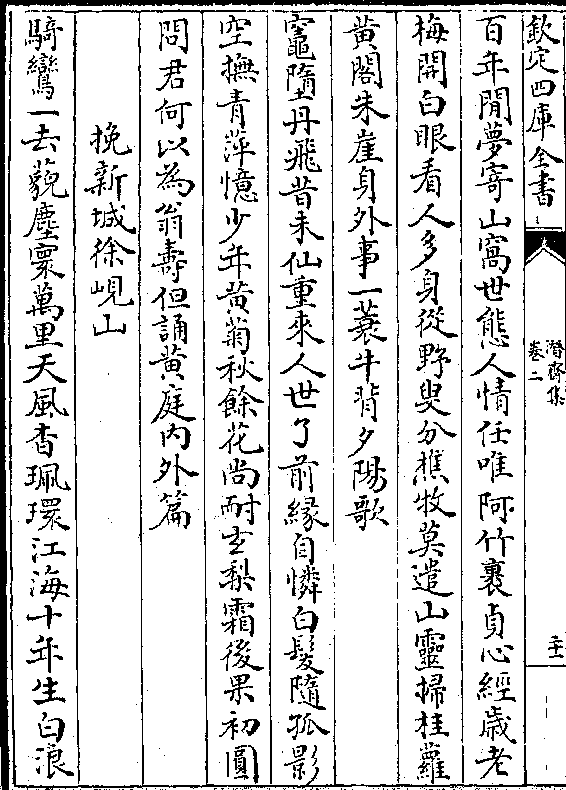 欽定四庫全書
潛齋集
卷二
二十一
百年閒夢寄山窩世態人情任唯阿竹裹貞心經歲老
梅開白眼看人多身從野叟分樵牧莫遣山靈掃桂蘿
黄閣朱崖身外事一蓑牛背夕陽歌
竈墮丹飛昔未仙重來人世了前縁自憐白髪隨孤影
空撫青萍憶少年黄菊秋餘花尚耐玄梨霜後果初圓
問君何以為翁壽但誦黄庭内外篇
挽新城徐峴山
騎鸞一去藐塵寰萬里天風杳珮環江海十年生白浪